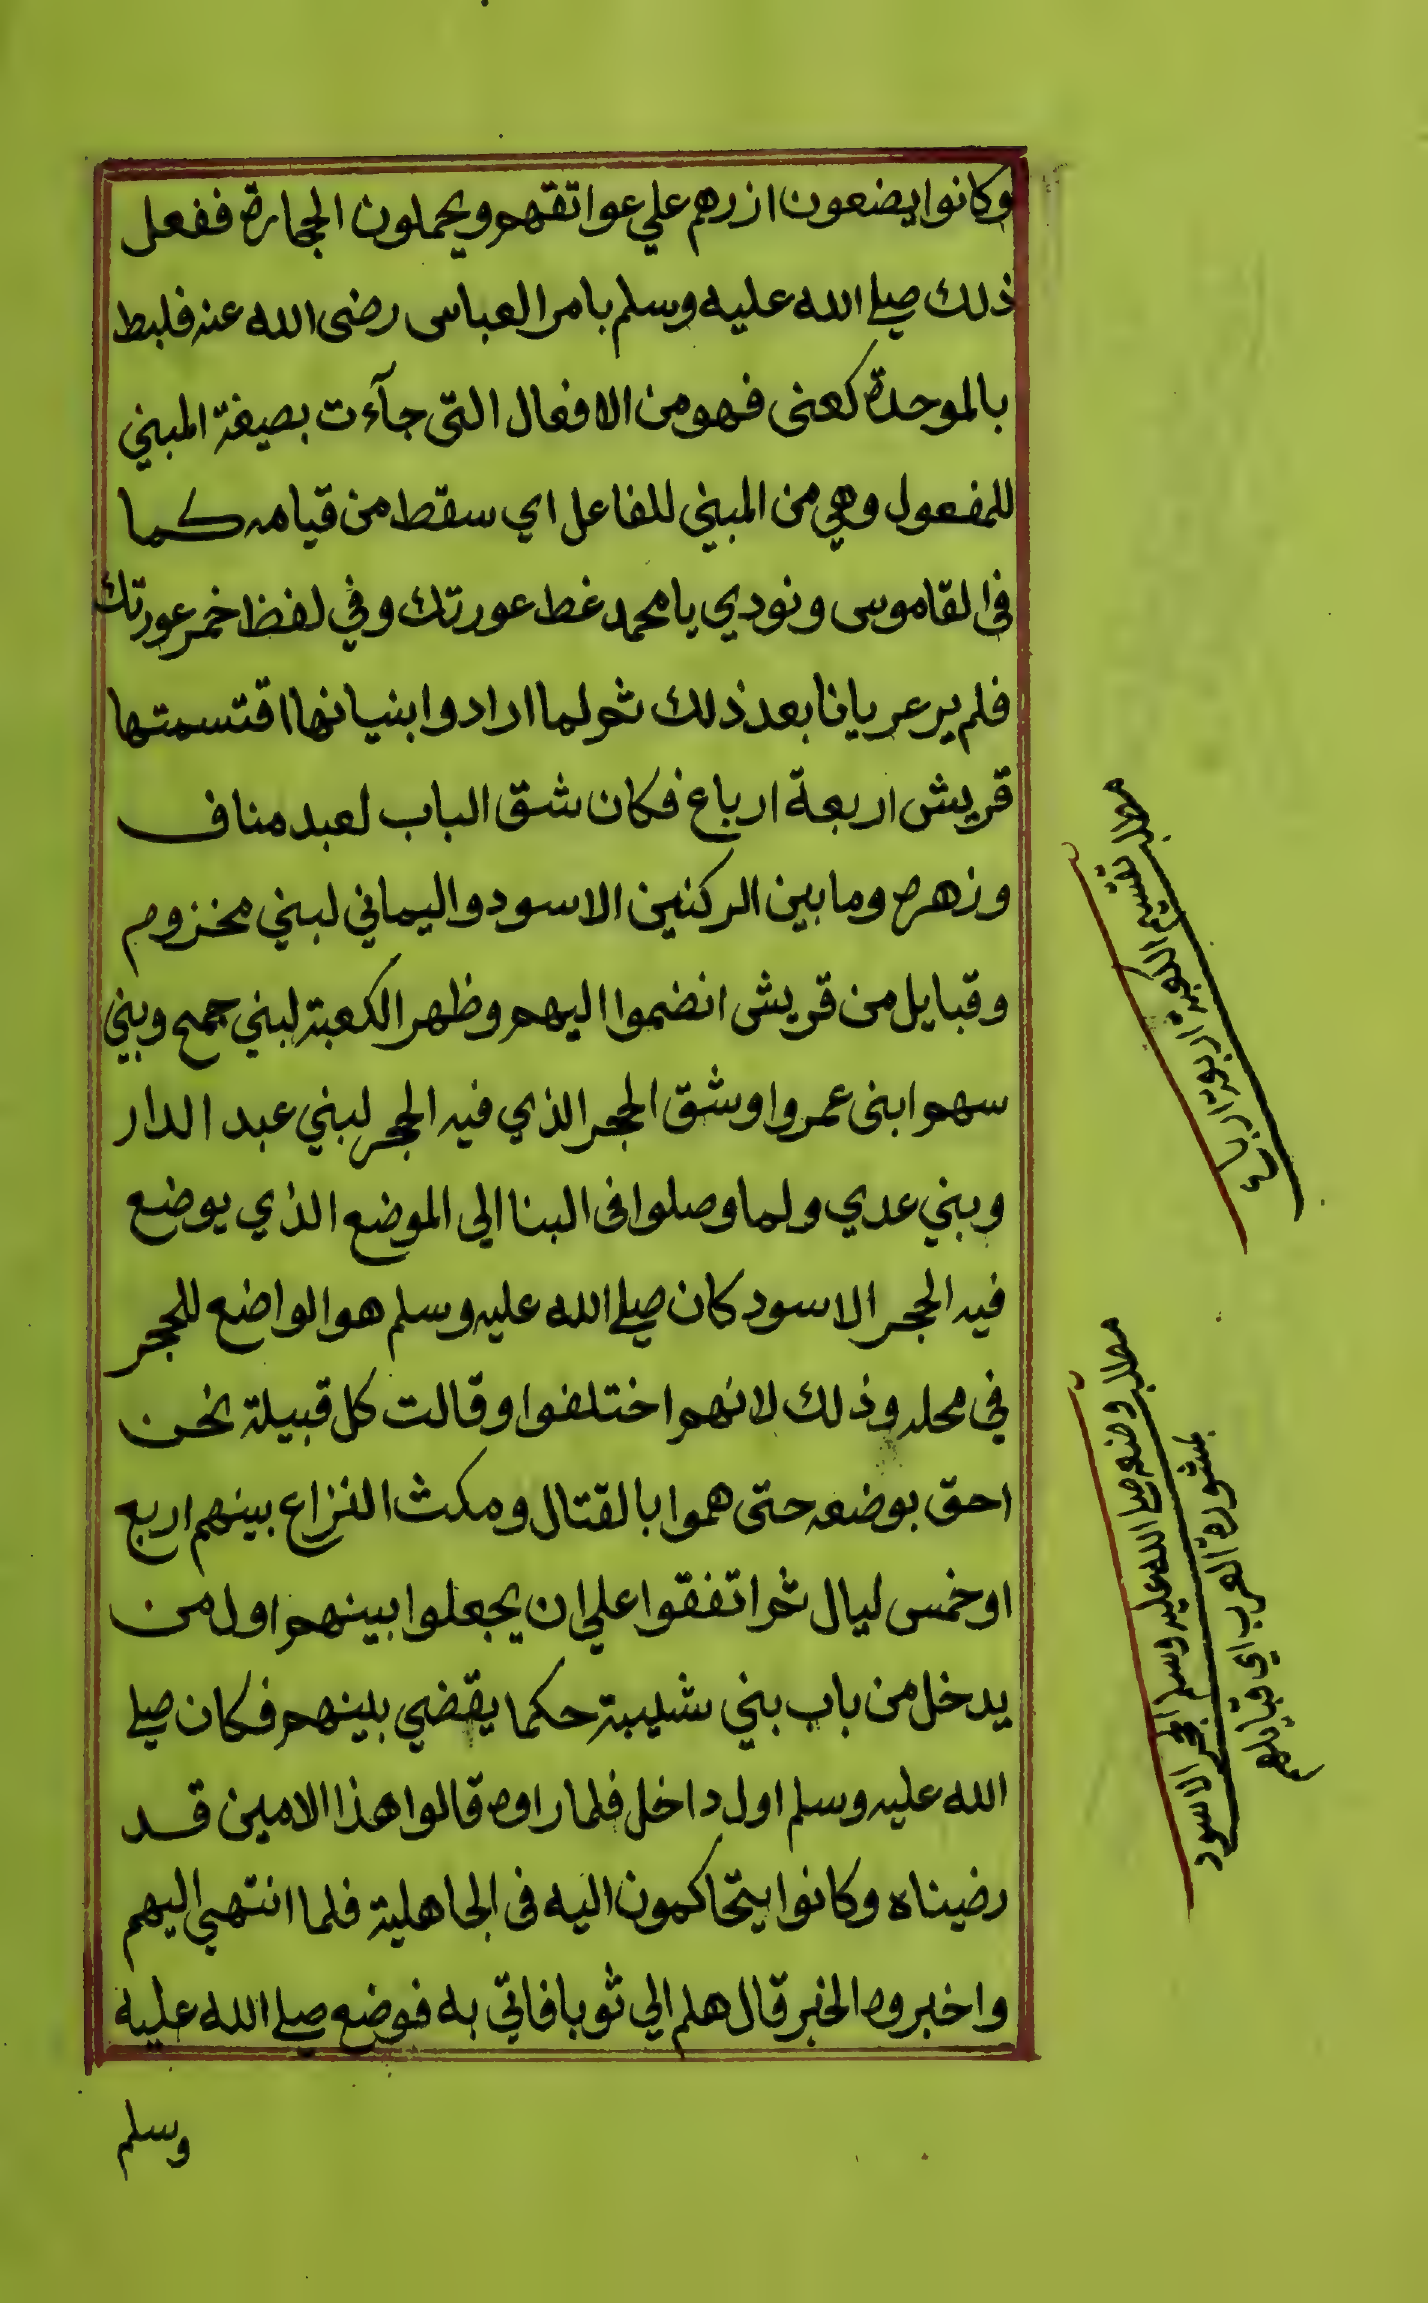 وكانوا يضعون ازرهم علي عواتقهم ويحملون الحجارة ففعل
ذلك صلى الله عليه وسلم بامر العباس رضى الله عنه فلبط
بالموحدة كعنى فهو من الافعال التى جآءت بصيغة المبني
للمفعول وهي من المبني للفاعل اي سقط من قيامه كما
في القاموس ونودي يا محمد غط عورتك وفي لفظ خمر عورتك
فلم ير عريانا بعد ذلك ثم لما ارادوا بنيانها اقتسمتها
قريش اربعة ارباع فكان شق الباب لعبد مناف
وزهره وما بين الركنين الاسود واليماني لبني مخزوم
وقبايل من قريش انضموا اليهم وظهر الكعبة لبني جمح وبني
سهم ابنى عمرو اوشق الحجر الذي فيه الحجر لبني عبد الدار
وبني عدي ولما وصلوا فى البنا الي الموضع الذي يوضع
فيه الحجر الاسود كان صلى الله عليه وسلم هو الواضع للحجر
في محله وذلك لانهم اختلفوا وقالت كل قبيلة نحن
احق بوضعه حتى هموا بالقتال ومكث النزاع بينهم اربع
او خمس ليال ثم اتفقوا علي ان يجعلوا بينهم اول من
يدخل من باب بني شيبة حكما يقضي بينهم فكان صلى
الله عليه وسلم اول داخل فلما راوه قالوا هذا الامين قد
رضيناه وكانوا يتحاكمون اليه فى الجاهلية فلما انتهي اليهم
واخبروه الخبر قال هلم الي ثوبا فاتي به فوضع صلى الله عليه
وسلم
مطلب تقسيم الكعبة اربعة ارباع
مطلب وضعه صلى الله عليه وسلم الحجر الاسود
بمشورة العرب اي قبايلهم